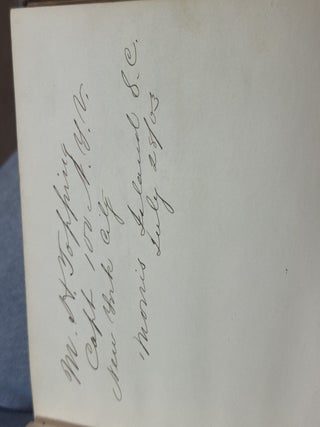 M. H. Topping
Capt 100 N.Y.V.
New York City
Morris Island S.C.
July 28/63